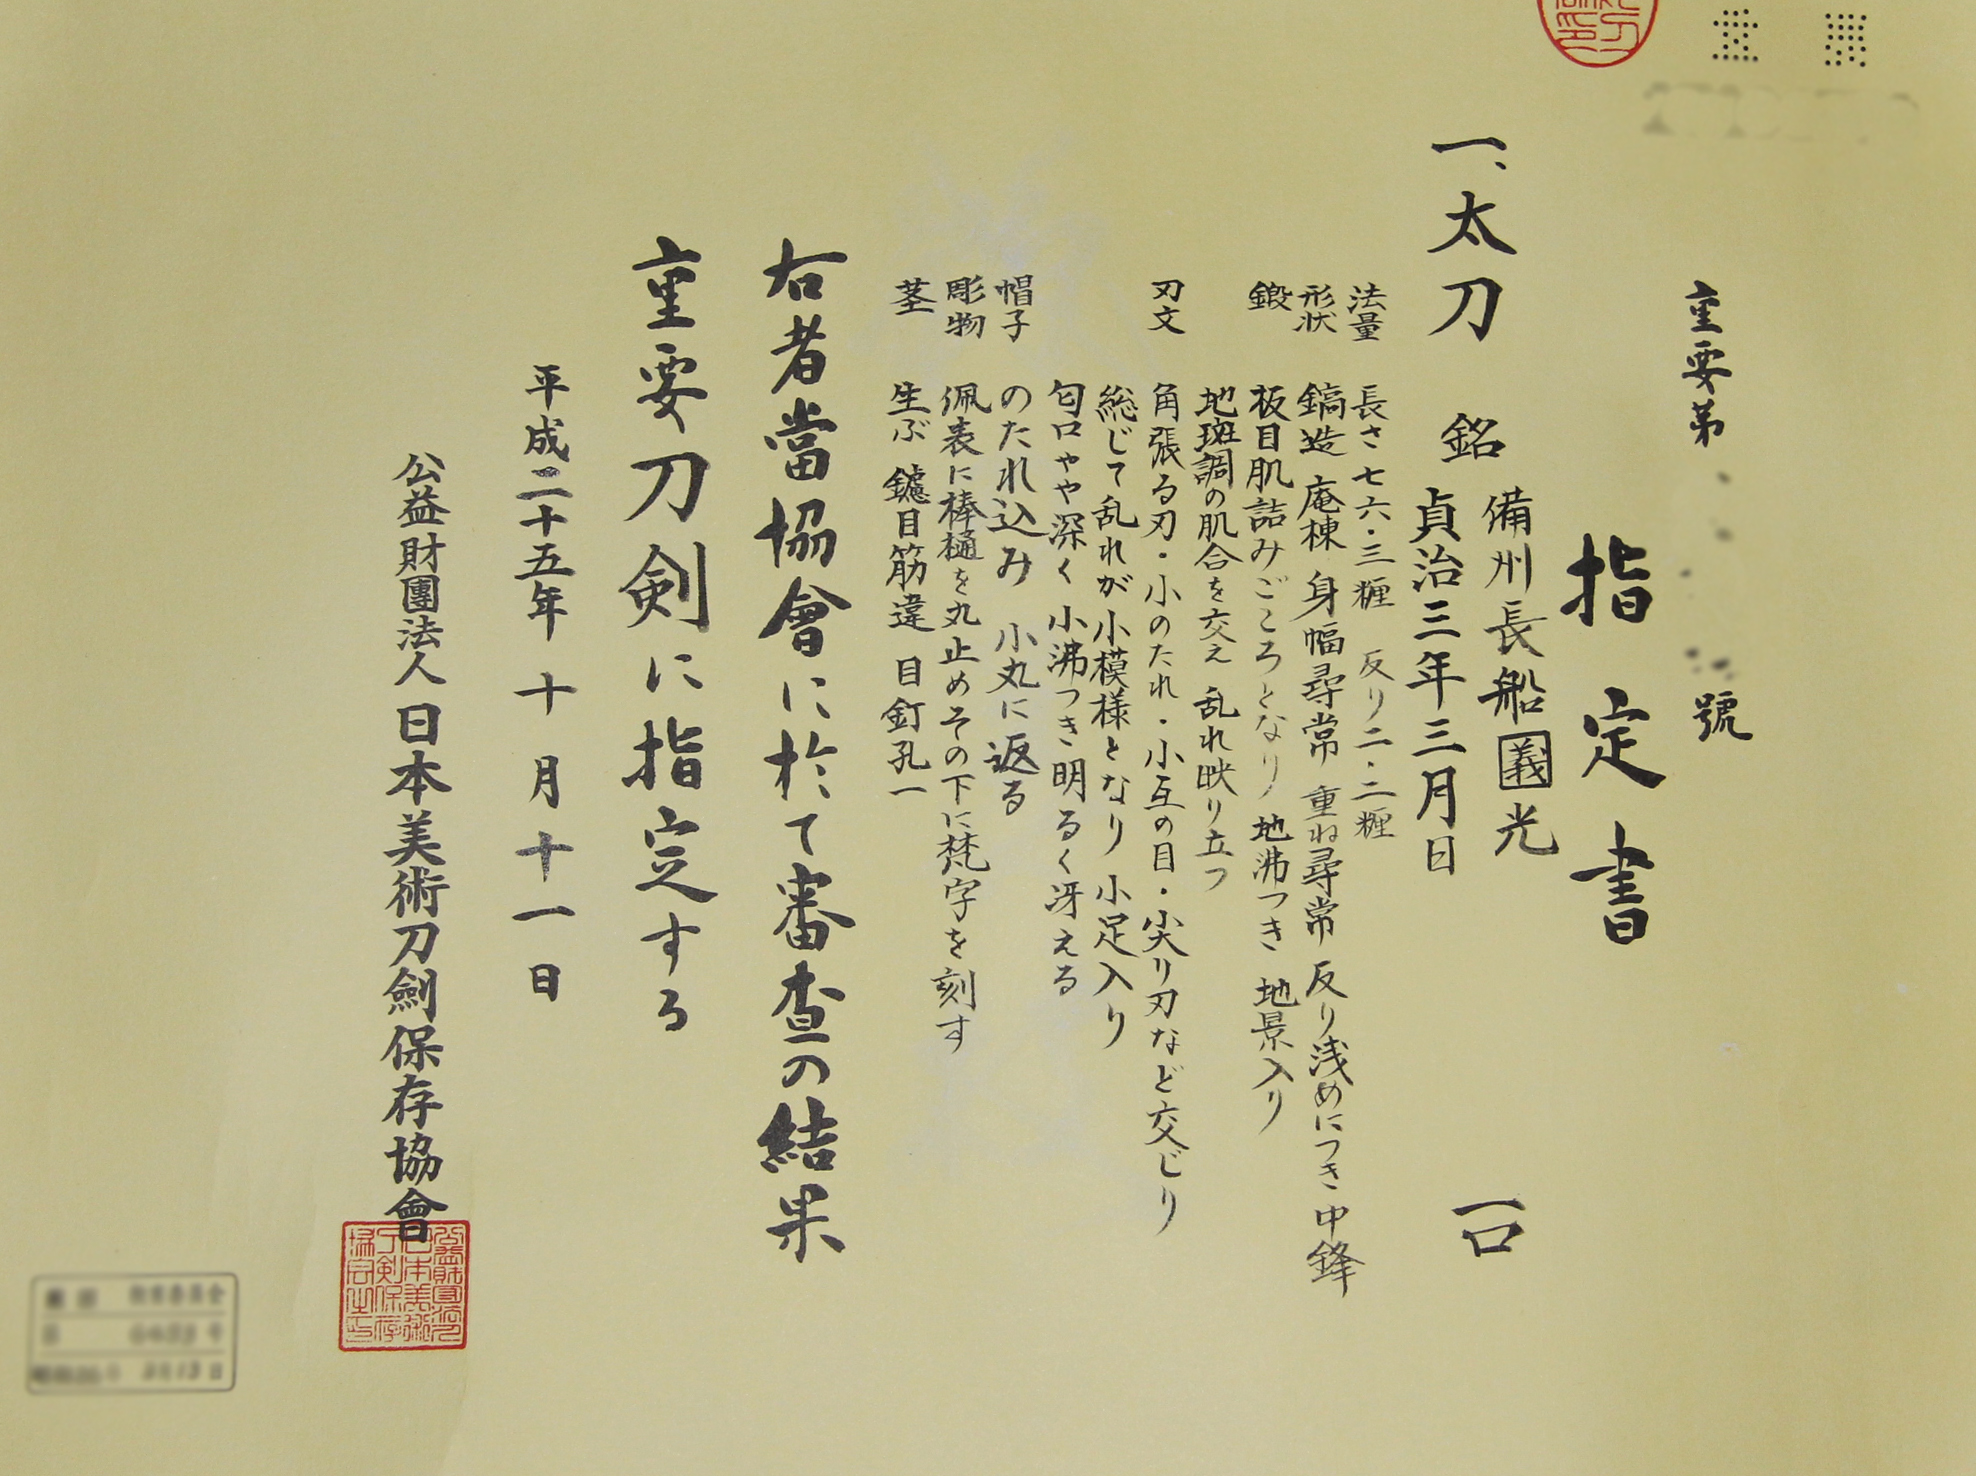 重要第　號
指定書
一、太刀　銘　備州長船義光　一口
貞治三年三月日
法量　長さ七六・三糎　反り二・二糎
形状　鎬造　庵棟　身幅尋常　重ね尋常　反り浅めにつき　中鋒
鍛　板目肌詰みごころとなり　地沸つき　地景入り
地斑調の肌合を交え　乱れ映り立つ
刃文　角張る刃・小のたれ・小互の目・尖り刃など交じり
総じて乱れが小模様となり　小足入り
匂口やや深く　小沸つき　明るく冴える
帽子　のたれ込み　小丸に返る
彫物　佩表に棒樋を丸止めその下に梵字を刻す
茎　生ぶ　鑢目筋違　目釘孔一
右者當協會に於て審査の結果
重要刀剣に指定する
平成二十五年十月十一日
公益財團法人日本美術刀劍保存協會